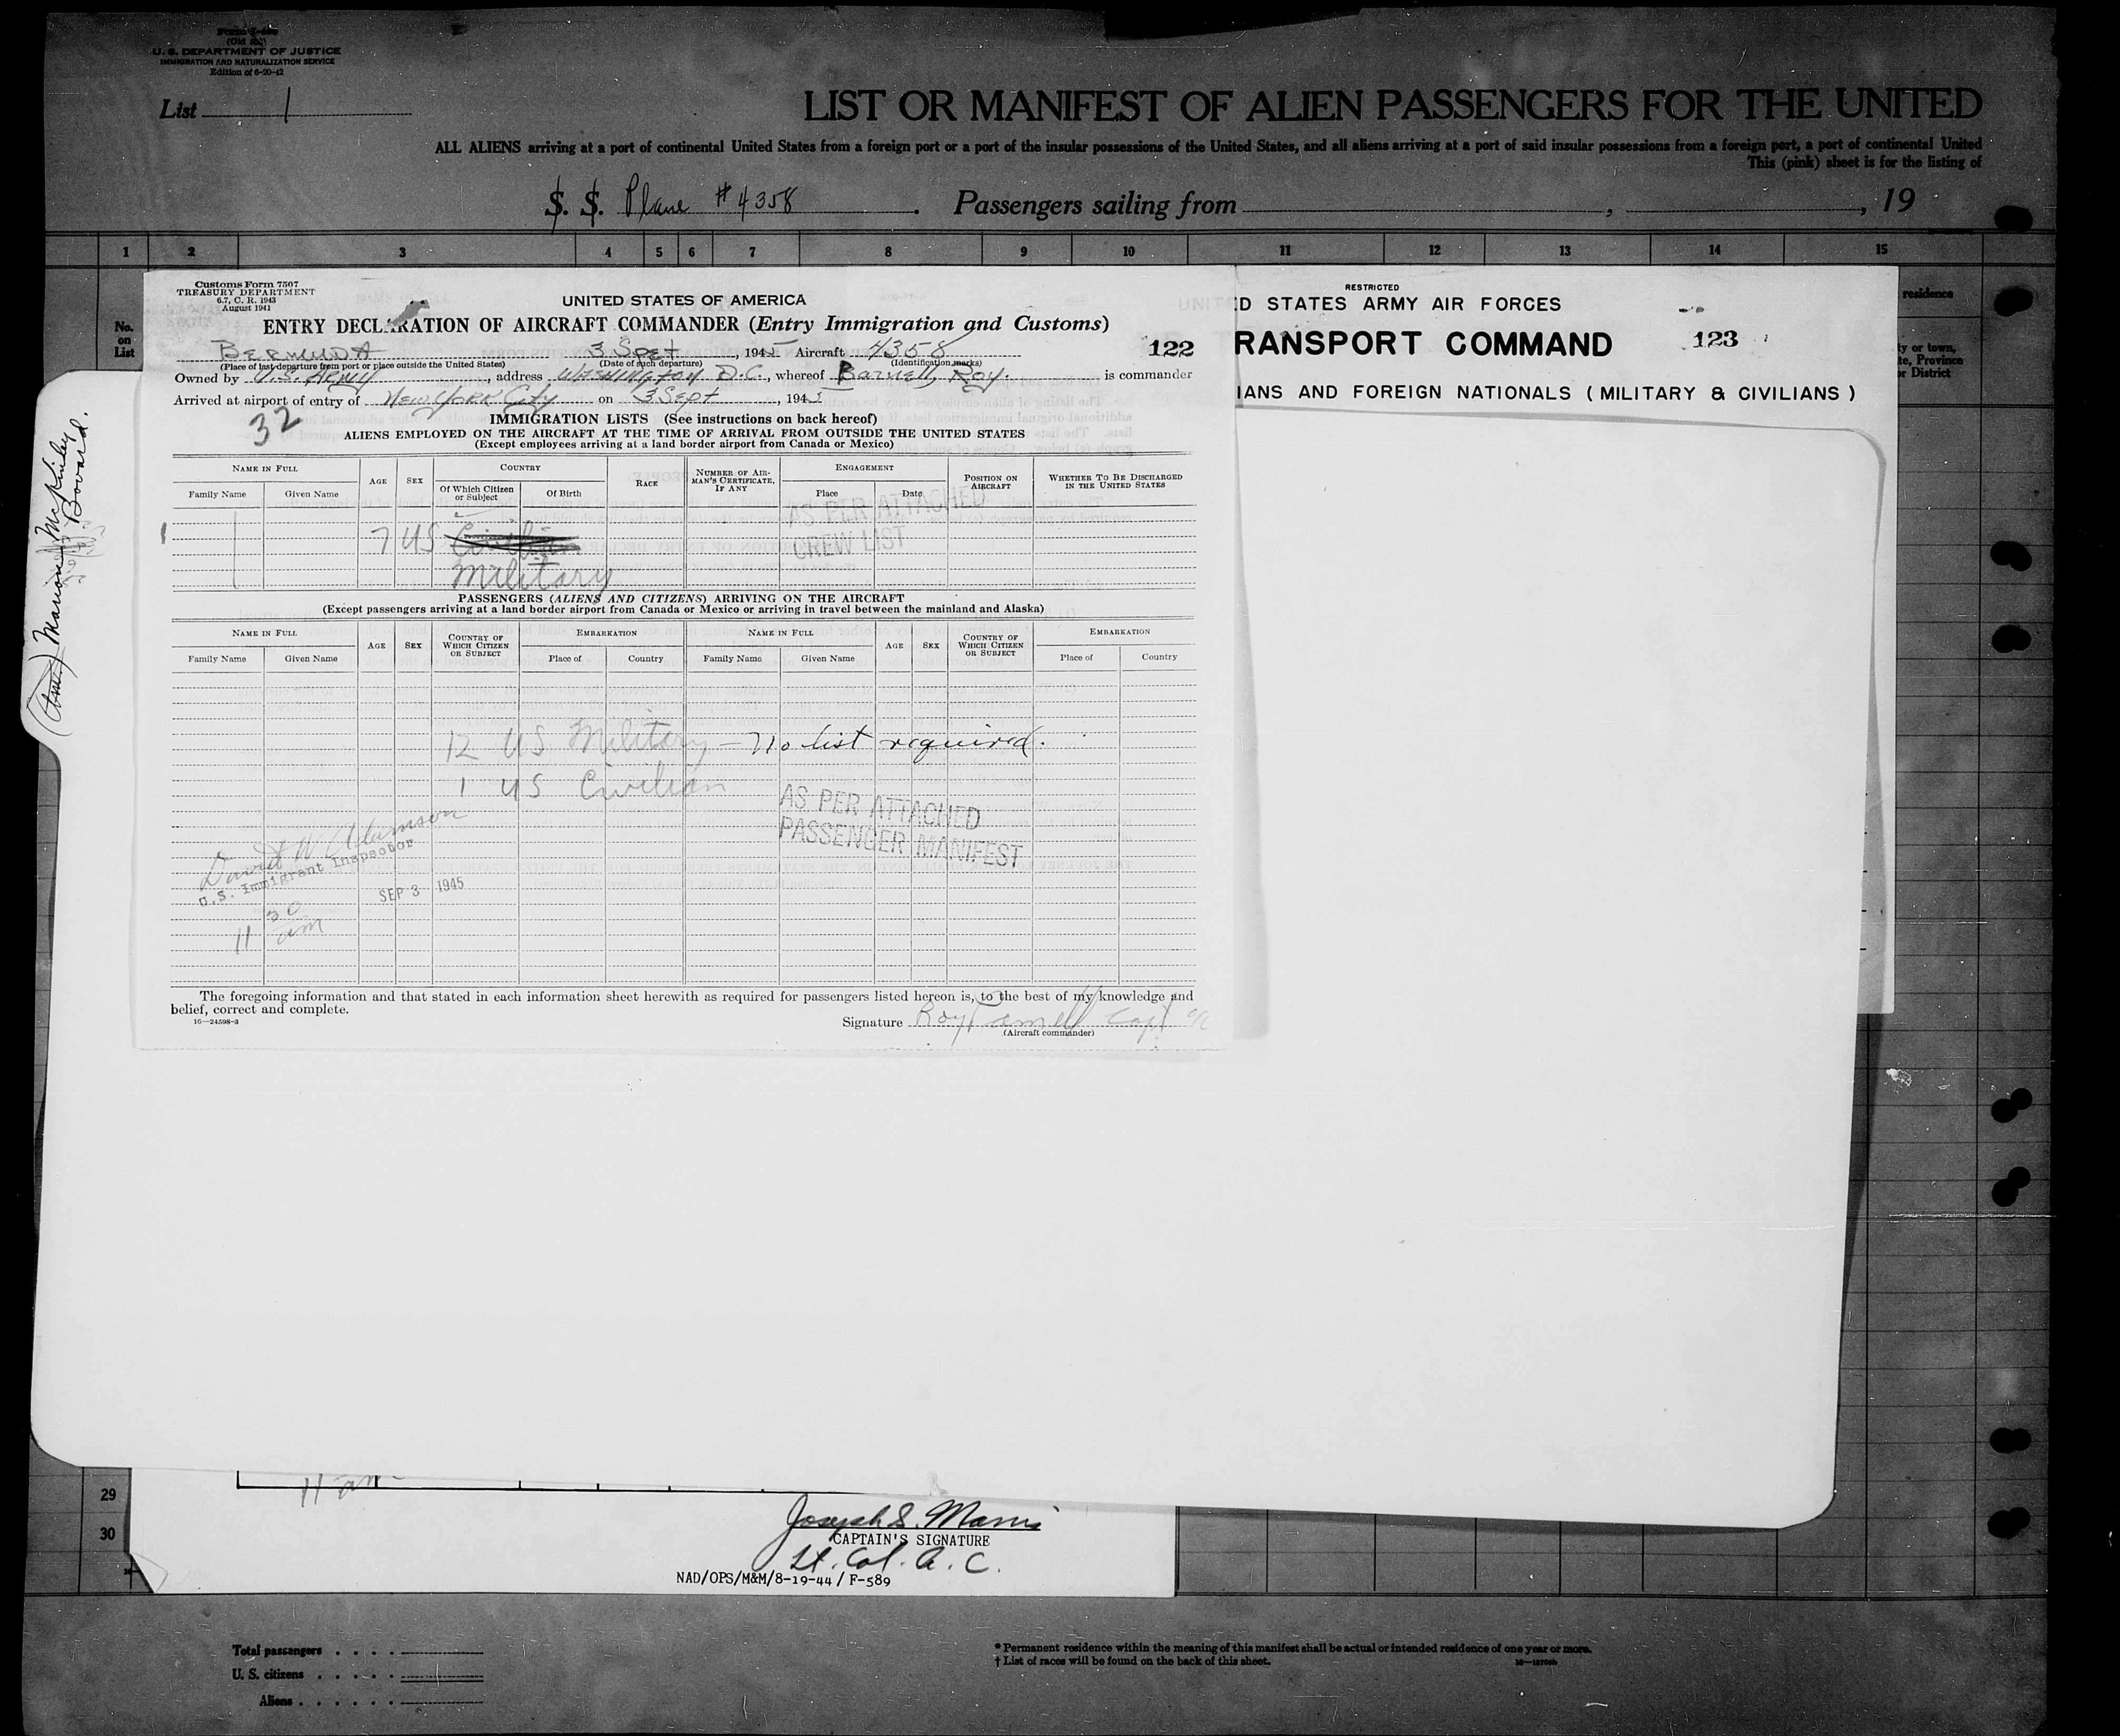 U. S. DEPARTMENT OF JUSTICE
IMMIGRATION AND NATURALIZATION SERVICE
Edition of 6-20-42
List 1
LIST OR MANIFEST OF ALIEN PASSENGERS FOR THE UNITED
ALL ALIENS arriving at a port of continental United States from a foreign port or a port of the insular possessions of the United States, and all aliens arriving at a port of said insular possessions from a foreign port, a port of continental United
This (pink) sheet is for the listing of
S. S. Plane #4358. Passengers sailing from , , 19
1 2 3 4 5 6 7 8 9 10 11 12 13 14 15
No. on List
residence
ty or town,
te, Province
or District
Marion McKinley
Bovard.
Customs Form 7507
TREASURY DEPARTMENT
6.7, C. R. 1943
August 1941
UNITED STATES OF AMERICA
ENTRY DECLARATION OF AIRCRAFT COMMANDER (Entry Immigration and Customs)
BERMUDA 3 Spet, 1945 Aircraft 4358 122
(Place of last departure from port or place outside the United States) (Date of such departure) (Identification marks)
Owned by U.S. ARMY, address WASHINGTON D.C., whereof Barnell, Roy. is commander
Arrived at airport of entry of NEW YORK City on 3 Sept, 1945
32
IMMIGRATION LISTS (See instructions on back hereof)
ALIENS EMPLOYED ON THE AIRCRAFT AT THE TIME OF ARRIVAL FROM OUTSIDE THE UNITED STATES
(Except employees arriving at a land border airport from Canada or Mexico)
NAME IN FULL AGE SEX COUNTRY RACE NUMBER OF AIRMAN'S CERTIFICATE, IF ANY ENGAGEMENT POSITION ON AIRCRAFT WHETHER TO BE DISCHARGED IN THE UNITED STATES
Family Name Given Name Of Which Citizen or Subject Of Birth Place Date
AS PER ATTACHED
CREW LIST
7 US Civilian
Military
PASSENGERS (ALIENS AND CITIZENS) ARRIVING ON THE AIRCRAFT
(Except passengers arriving at a land border airport from Canada or Mexico or arriving in travel between the mainland and Alaska)
NAME IN FULL AGE SEX COUNTRY OF WHICH CITIZEN OR SUBJECT EMBARKATION NAME IN FULL AGE SEX COUNTRY OF WHICH CITIZEN OR SUBJECT EMBARKATION
Family Name Given Name Place of Country Family Name Given Name Place of Country
12 US Military - No list required.
1 US Civilian
AS PER ATTACHED
PASSENGER MANIFEST
David W Adamson
U.S. Immigrant Inspector
SEP 3 1945
11 30 am
The foregoing information and that stated in each information sheet herewith as required for passengers listed hereon is, to the best of my knowledge and
belief, correct and complete.
16—24598-3
Signature Roy Capt
(Aircraft commander)
RESTRICTED
D STATES ARMY AIR FORCES
RANSPORT COMMAND 123
IANS AND FOREIGN NATIONALS ( MILITARY & CIVILIANS )
29
30
11 am
Joseph S. Marris
CAPTAIN'S SIGNATURE
Lt. Col. A. C.
NAD/OPS/M&M/8-19-44 / F-589
Total passengers
U. S. citizens
Aliens
* Permanent residence within the meaning of this manifest shall be actual or intended residence of one year or more.
† List of races will be found on the back of this sheet.